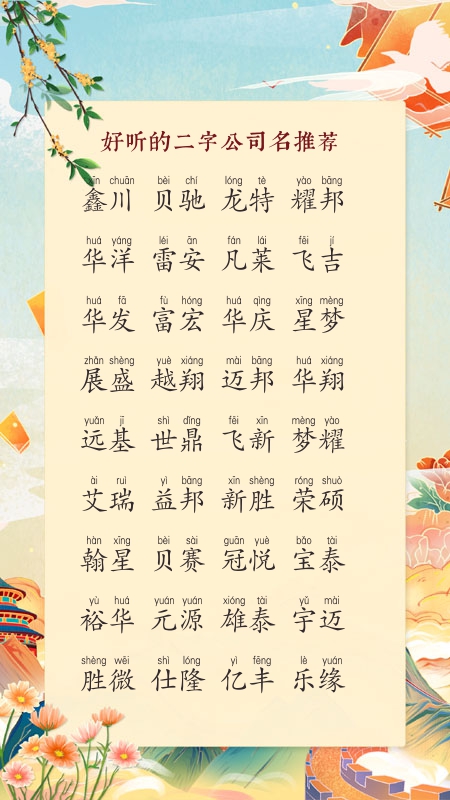 好听的二字公司名推荐
xīn chuān bèi chí lóng tè yào bāng
鑫川 贝驰 龙特 耀邦
huá yáng léi ān fán lái fēi jí
华洋 雷安 凡莱 飞吉
huá fā fù hóng huá qìng xīng mèng
华发 富宏 华庆 星梦
zhǎn shèng yuè xiáng mài bāng huá xiáng
展盛 越翔 迈邦 华翔
yuǎn jī shì dǐng fēi xīn mèng yào
远基 世鼎 飞新 梦耀
ài ruì yì bāng xīn shèng róng shuò
艾瑞 益邦 新胜 荣硕
hàn xīng bèi sài guān yuè bǎo tài
翰星 贝赛 冠悦 宝泰
yù huá yuán yuán xióng tài yǔ mài
裕华 元源 雄泰 宇迈
shèng wēi shì lóng yì fēng lè yuán
胜微 仕隆 亿丰 乐缘